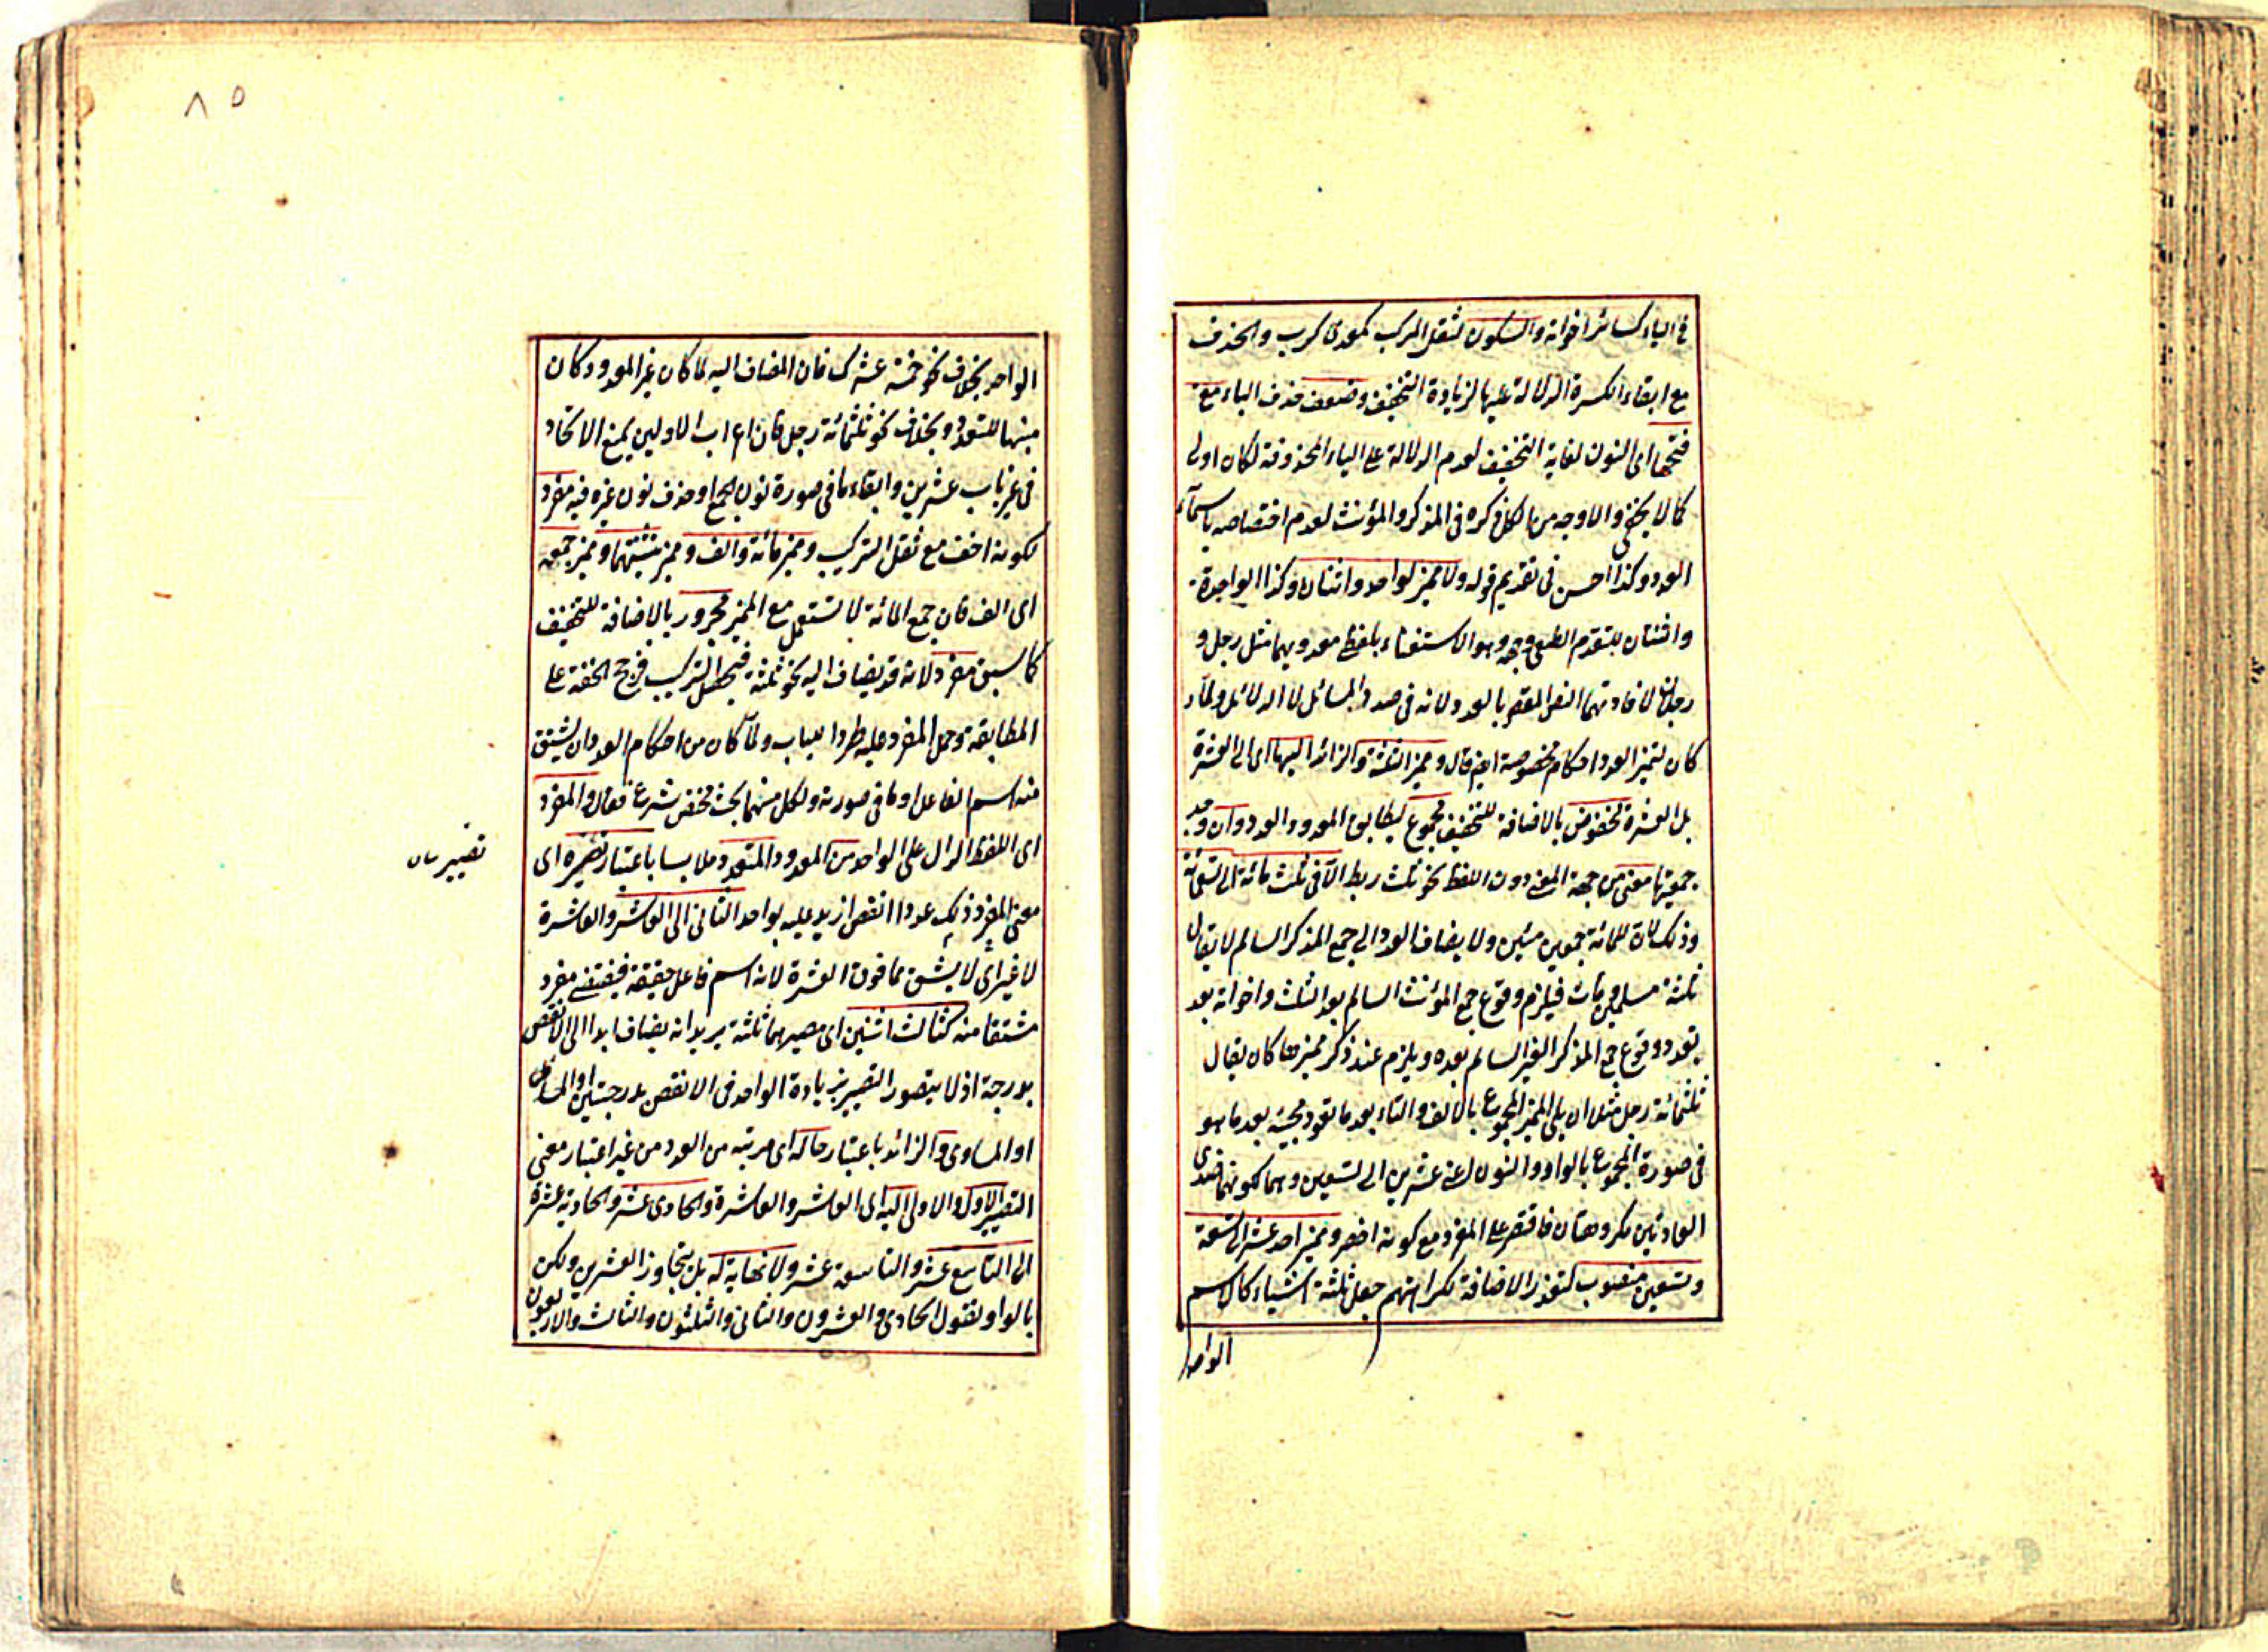 في الياء كسائر اخواته والسكون لثقل المركب كمعدي كرب والحذف
مع ابقاء الكسرة الدالة عليها لزيادة التخفيف وضعف حذف الياء مع
فتحها اى النون لغاية التخفيف لعدم الدلالة على الياء المحذوفة لكان اولى
كما لا يخفى والاوجه من الكل ذكره فى المذكر والمؤنث لعدم اختصاصه باسماء
العدد وكذا احسن فى تقديم قوله ولا مميز لواحد واثنان وكذا الواحدة
واثنتان للتقدم الطبعى وجهه وهو الاستغناء بلفظ معدوديهما مثل رجل و
رجلان لافادتهما النص المقصود بالعدد لانه فى صدد المسائل لا الدلائل ولما
كان لتميز العدد احكام مخصوصة ايضا قال ومميز الثلثة والزائد اليها اى الى العشرة
بل العشرة مخفوض بالاضافة للتخفيف مجموع ليطابق المعدود العدد وان وجد
جمعيتها معنى من جهة المعنى دون اللفظ نحو ثلث ربط الا فى ثلث مائة الى تسعمائة
وذلك لان للمائة جمعين مئين ولا يضاف العدد الى جمع المذكر السالم لا يقال
ثلثة مسلمين ومئات فيلزم وقوع جمع المؤنث السالم بعد الثلث واخواته بعد
تعدد وقوع جمع المذكر الغير السالم بعده ويلزم عند ذكر مميزها كان يقال
ثلثمائة رجل مثلا ان يلى المميز المجموع بالالف والتاء بعد ما تعود مجيئه بعد ما هو
فى صورة المجموع بالواو والنون اعنى عشرين الى تسعين وهما لكونهما
العادتين مكروهتان فاقتصر على المفرد مع كونه اخصر ومميز احد عشر الى تسعة
وتسعين منصوب لتعذر الاضافة لكراهتهم جعل ثلثة اشياء كالاسم
الواحد
٨٥
الواحد بخلاف نحو خمسة عشرك فان المضاف اليه لما كان غير المعدود كان
منها للتعدد وبخلاف نحو ثلثمائة رجل فان اعراب الاولين يمنع الاتحاد
فى غير باب عشرين وابقاء ما فى صورة نون الجمع او حذف نون غيره فيه مفرد
لكونه اخف مع ثقل التركيب ومميز مائة والف ومميز تثنيتهما ومميز جمعه
اى الف فان جمع المائة لا تستعمل مع المميز مجرور بالاضافة للتخفيف
كما سبق مفرد لانه قد يضاف اليه نحو ثلثة فيحصل التركيب فرجح الخفة على
المطابقة وحمل المفرد عليه طردا للباب ولما كان من احكام العدد ان يشتق
منه اسم الفاعل او ما فى صورته ولكل منهما بحث مختص شرع فقال والمفرد
اى اللفظ الدال على الواحد من المعدود المتعدد ملابسا باعتبار تصييره اى
معنى المفرد ذلك عددا انقص ازيد عليه بواحد الثانى الى العاشر والعاشرة
لا غير اى لا يشتق مما فوق العشرة لانه اسم فاعل حقيقة فيقتضى مفرد
مشتقا منه كثالث اثنين اى مصيرهما ثلثة يريد انه يضاف ابدا الى الانقص
بدرجة اذ لا يتصور التصيير بزيادة الواحد فى الانقص بدرجتين
او المساوى والزائد باعتبار حاله اى مرتبته من العدد من غير اعتبار معنى
التصيير الاول والاولى اليه اى العاشر والعاشرة والحادى عشر والحادية عشرة
الى التاسع عشر والتاسعة عشر ولا نهاية له بل يتجاوز العشرين ولكن
بالواو لتقول الحادى والعشرون والثانى والثلثون والثالث والاربعون
تصيير